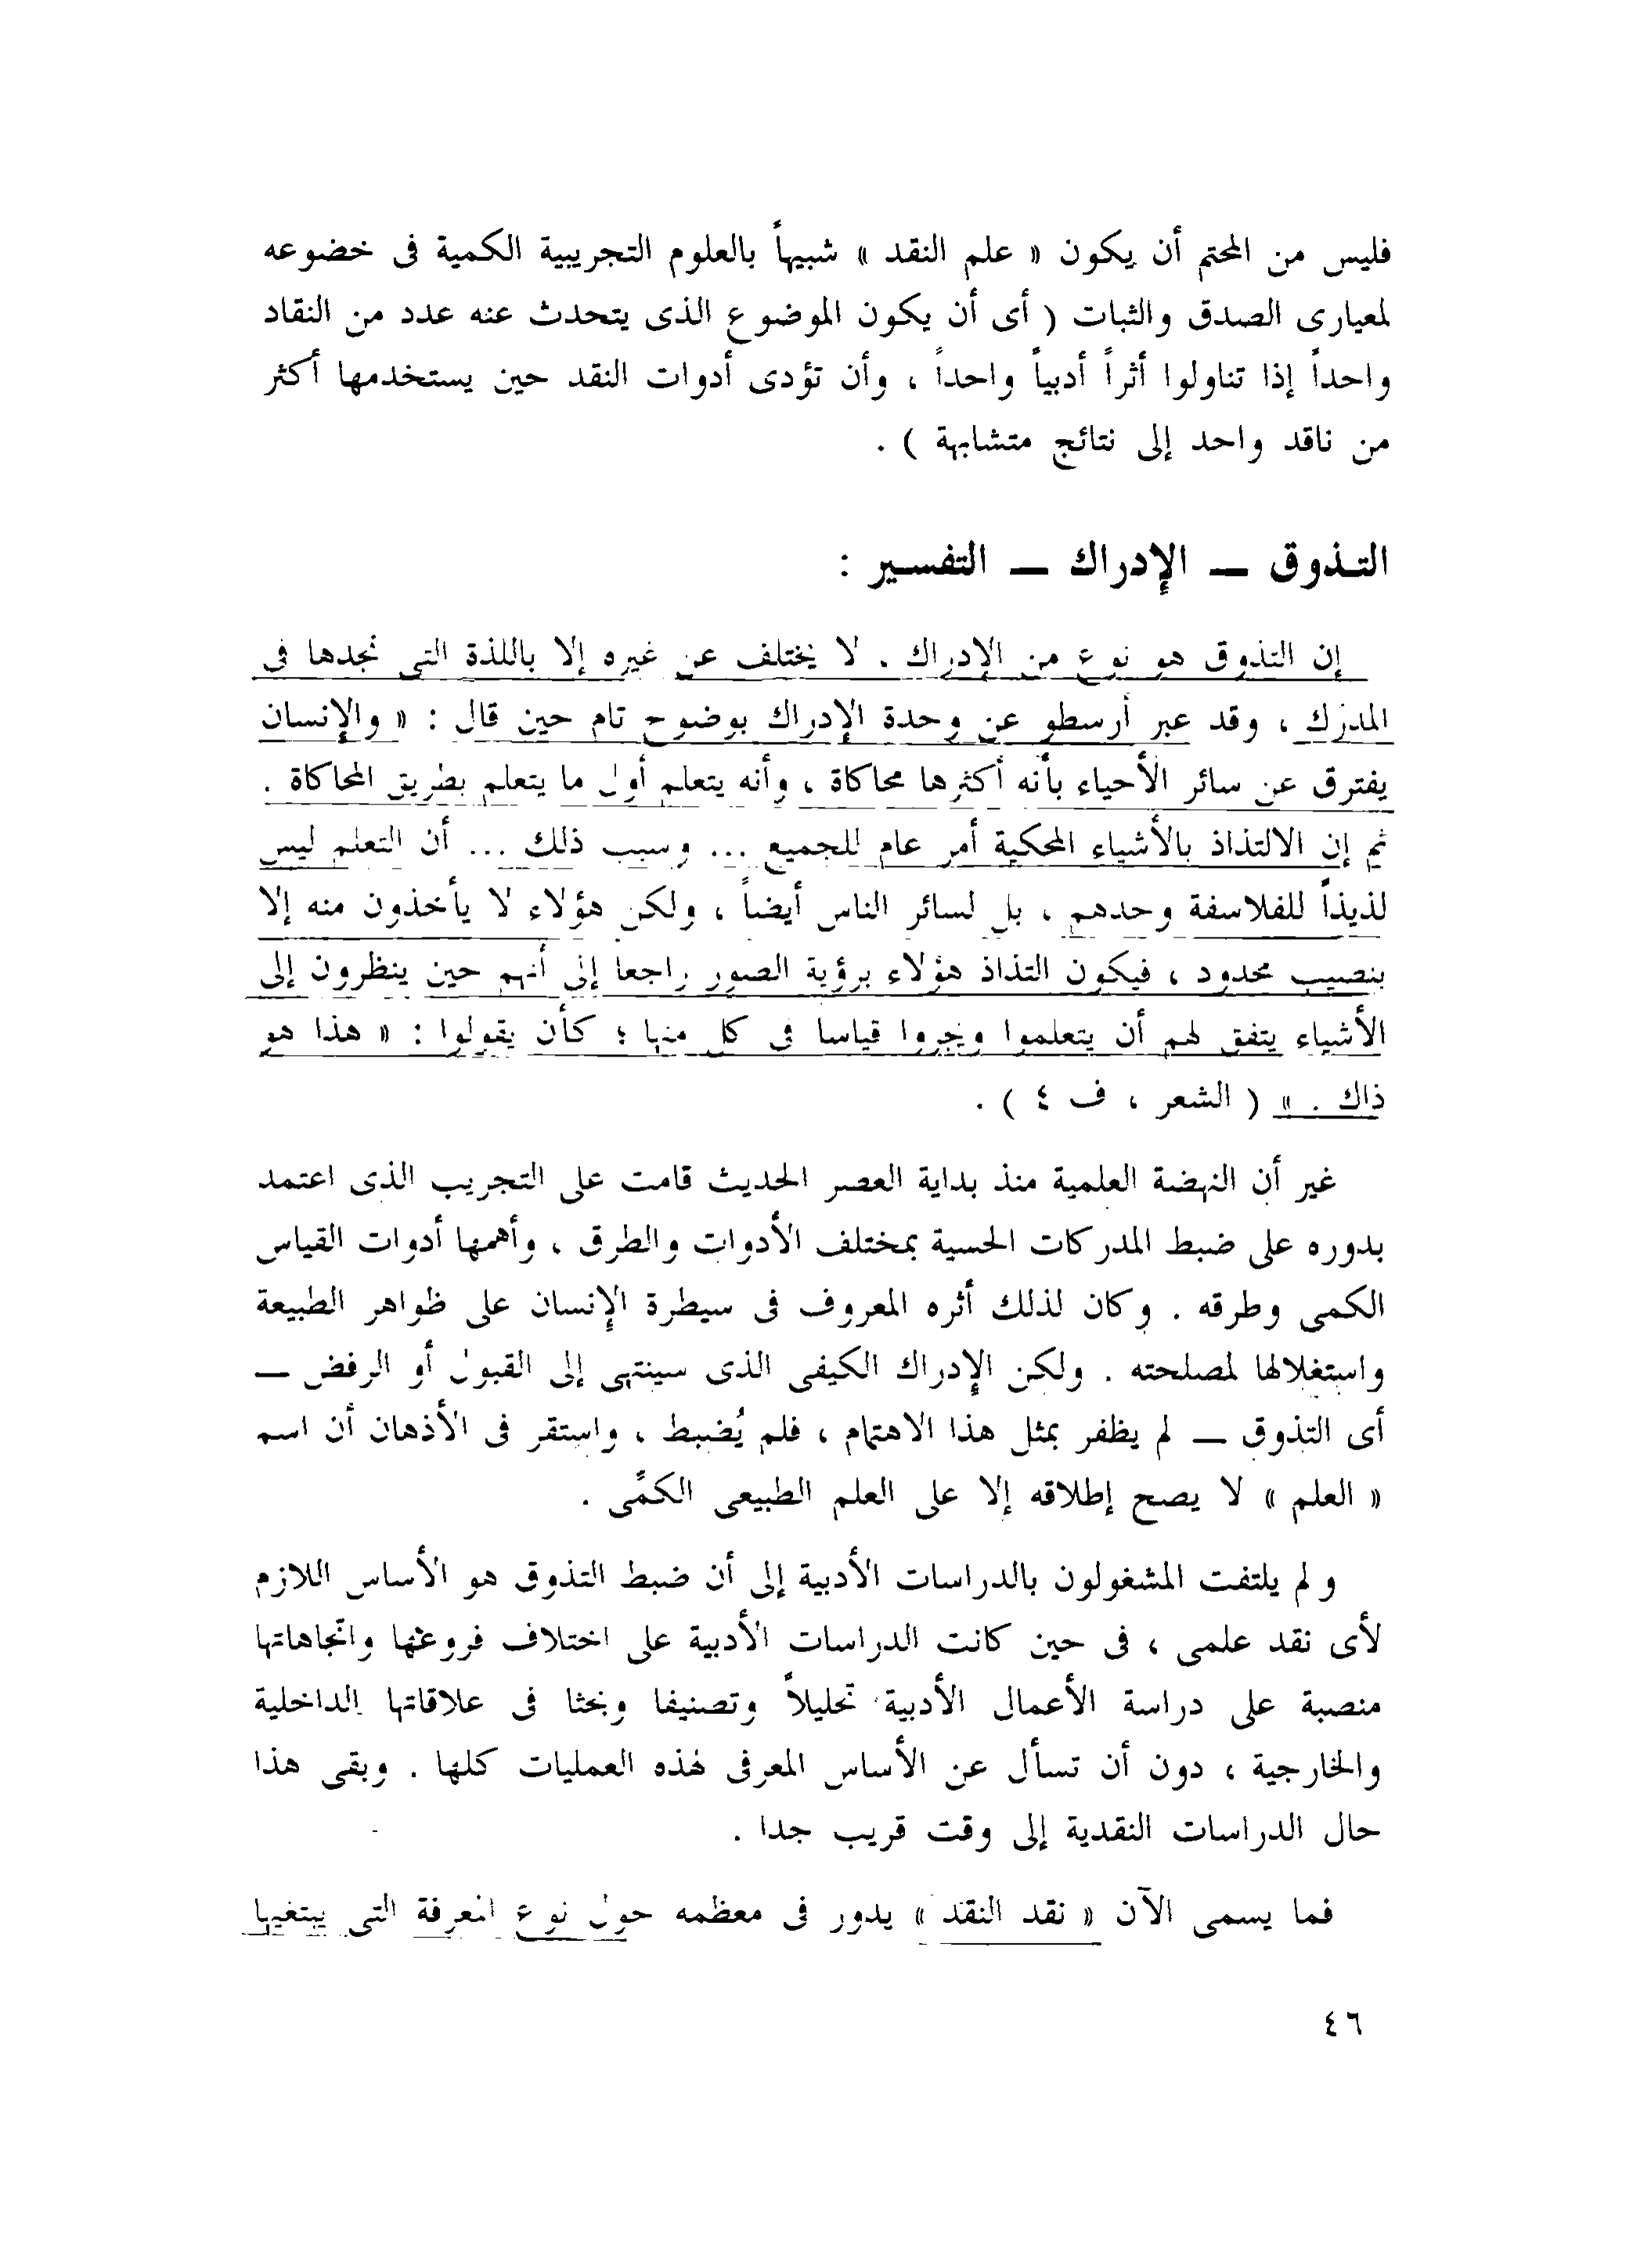 فليس من المحتم أن يكون « علم النقد » شبيهاً بالعلوم التجريبية الكمية فى خضوعه
لمعيارى الصدق والثبات ( أى أن يكون الموضوع الذى يتحدث عنه عدد من النقاد
واحداً إذا تناولوا أثراً أدبياً واحداً ، وأن تؤدى أدوات النقد حين يستخدمها أكثر
من ناقد واحد إلى نتائج متشابهة ) .
التـذوق ــ الإدراك ــ التفسـير :
إن التذوق هو نوع من الإدراك . لا يختلف عن غيره إلا باللذة التى نجدها فى
المدرَك ، وقد عبر أرسطو عن وحدة الإدراك بوضوح تام حين قال : « والإنسان
يفترق عن سائر الأحياء بأنه أكثرها محاكاة ، وأنه يتعلم أول ما يتعلم بطريق المحاكاة .
ثم إن الالتذاذ بالأشياء المحكية أمر عام للجميع ... وسبب ذلك ... أن التعلم ليس
لذيذاً للفلاسفة وحدهم ، بل لسائر الناس أيضاً ، ولكن هؤلاء لا يأخذون منه إلا
بنصيب محدود ، فيكون التذاذ هؤلاء برؤية الصور راجعا إلى أنهم حين ينظرون إلى
الأشياء يتفق لهم أن يتعلموا ويجروا قياسا فى كل منها ؛ كأن يقولوا : « هذا هو
ذاك . » ( الشعر ، ف ٤ ) .
غير أن النهضة العلمية منذ بداية العصر الحديث قامت على التجريب الذى اعتمد
بدوره على ضبط المدركات الحسية بمختلف الأدوات والطرق ، وأهمها أدوات القياس
الكمى وطرقه . وكان لذلك أثره المعروف فى سيطرة الإنسان على ظواهر الطبيعة
واستغلالها لمصلحته . ولكن الإدراك الكيفى الذى سينتهى إلى القبول أو الرفض ــ
أى التذوق ــ لم يظفر بمثل هذا الاهتمام ، فلم يُضبط ، واستقر فى الأذهان أن اسم
« العلم » لا يصح إطلاقه إلا على العلم الطبيعى الكمّى .
ولم يلتفت المشغولون بالدراسات الأدبية إلى أن ضبط التذوق هو الأساس اللازم
لأى نقد علمى ، فى حين كانت الدراسات الأدبية على اختلاف فروعها واتجاهاتها
منصبة على دراسة الأعمال الأدبية تحليلاً وتصنيفا وبحثا فى علاقاتها الداخلية
والخارجية ، دون أن تسأل عن الأساس المعرفى لهذه العمليات كلها . وبقى هذا
حال الدراسات النقدية إلى وقت قريب جدا .
فما يسمى الآن « نقد النقد » يدور فى معظمه حول نوع المعرفة التى يبتغيها
٤٦